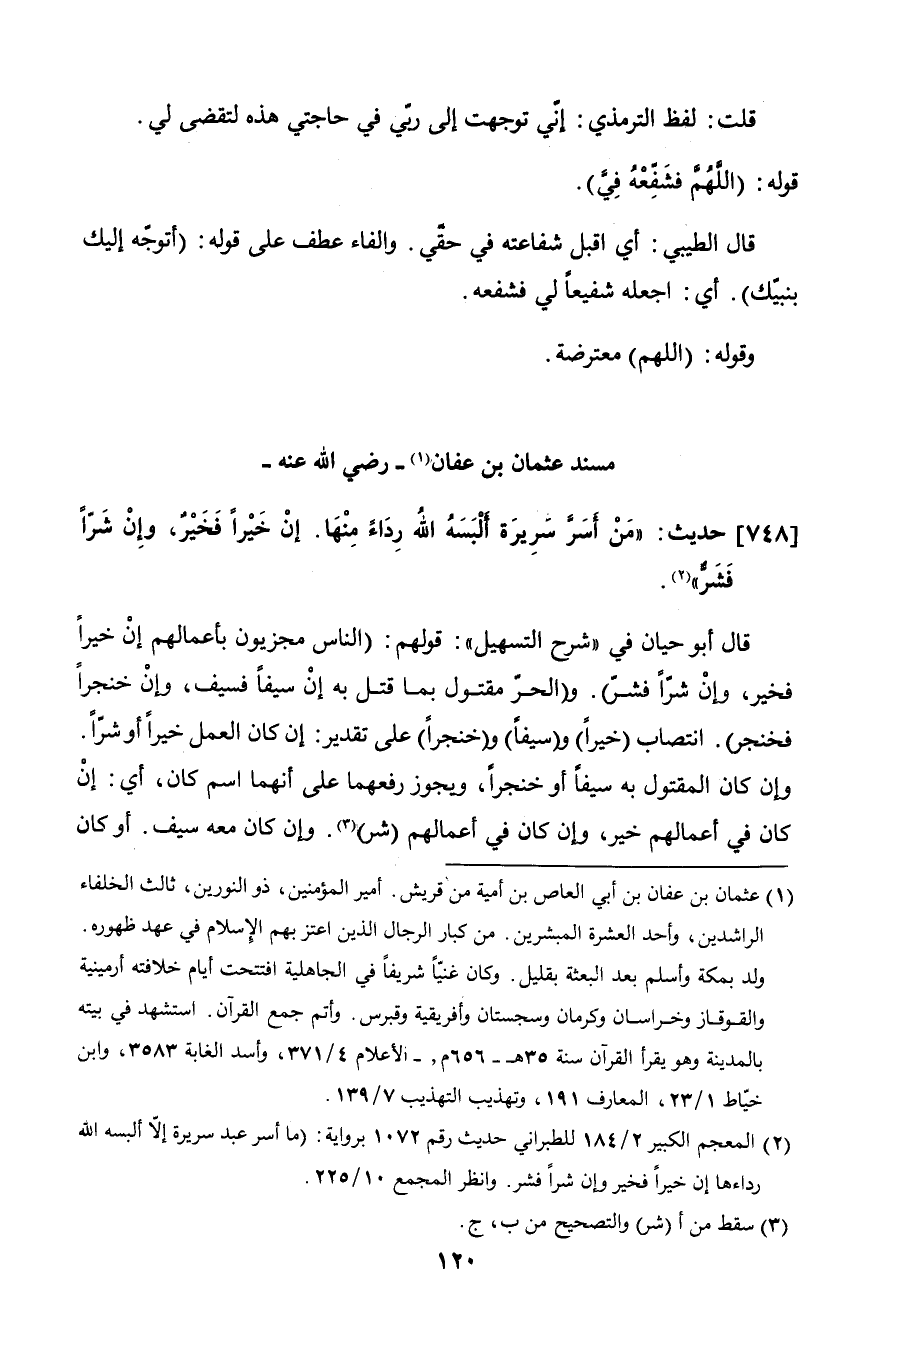 قلت: لفظ الترمذي: إنّي توجهت إلى ربّي في حاجتي هذه لتقضى لي.
قوله: (اللَّهُمَّ فشَفِّعْهُ فِيَّ).
قال الطيبي: أي اقبل شفاعته في حقّي. والفاء عطف على قوله: (أتوجّه إليك
بنبيّك). أي: اجعله شفيعاً لي فشفعه.
وقوله: (اللهم) معترضة.
مسند عثمان بن عفان(١) ـ رضي الله عنه ـ
[٧٤٨] حديث: «مَنْ أَسَرَّ سَرِيرَة أَلْبَسَهُ اللهُ رِدَاءً مِنْهَا. إنْ خَيْراً فَخَيْرٌ، وإِنْ شَرّاً
فَشَرٌّ»(٢).
قال أبو حيان في «شرح التسهيل»: قولهم: (الناس مجزيون بأعمالهم إنْ خيراً
فخير، وإنْ شرّاً فشرّ). و(الحرّ مقتول بما قتل به إنْ سيفاً فسيف، وإنْ خنجراً
فخنجر). انتصاب (خيراً) و(سيفاً) و(خنجراً) على تقدير: إن كان العمل خيراً أو شرّاً.
وإن كان المقتول به سيفاً أو خنجراً، ويجوز رفعهما على أنهما اسم كان، أي: إنْ
كان في أعمالهم خير، وإن كان في أعمالهم (شر)(٣). وإن كان معه سيف. أو كان
(١) عثمان بن عفان بن أبي العاص بن أمية من قريش. أمير المؤمنين، ذو النورين، ثالث الخلفاء
الراشدين، وأحد العشرة المبشرين. من كبار الرجال الذين اعتز بهم الإسلام في عهد ظهوره.
ولد بمكة وأسلم بعد البعثة بقليل. وكان غنيّاً شريفاً في الجاهلية افتتحت أيام خلافته أرمينية
والقوقاز وخراسان وكرمان وسجستان وأفريقية وقبرس. وأتم جمع القرآن. استشهد في بيته
بالمدينة وهو يقرأ القرآن سنة ٣٥هـ ـ ٦٥٦م, ـ الأعلام ٣٧١/٤، وأسد الغابة ٣٥٨٣، وابن
خيّاط ٢٣/١، المعارف ١٩١، وتهذيب التهذيب ١٣٩/٧.
(٢) المعجم الكبير ١٨٤/٢ للطبراني حديث رقم ١٠٧٢ برواية: (ما أسر عبد سريرة إلّا ألبسه الله
رداءها إن خيراً فخير وإن شراً فشر. وانظر المجمع ٢٢٥/١٠.
(٣) سقط من أ (شر) والتصحيح من ب، ج.
١٢٠